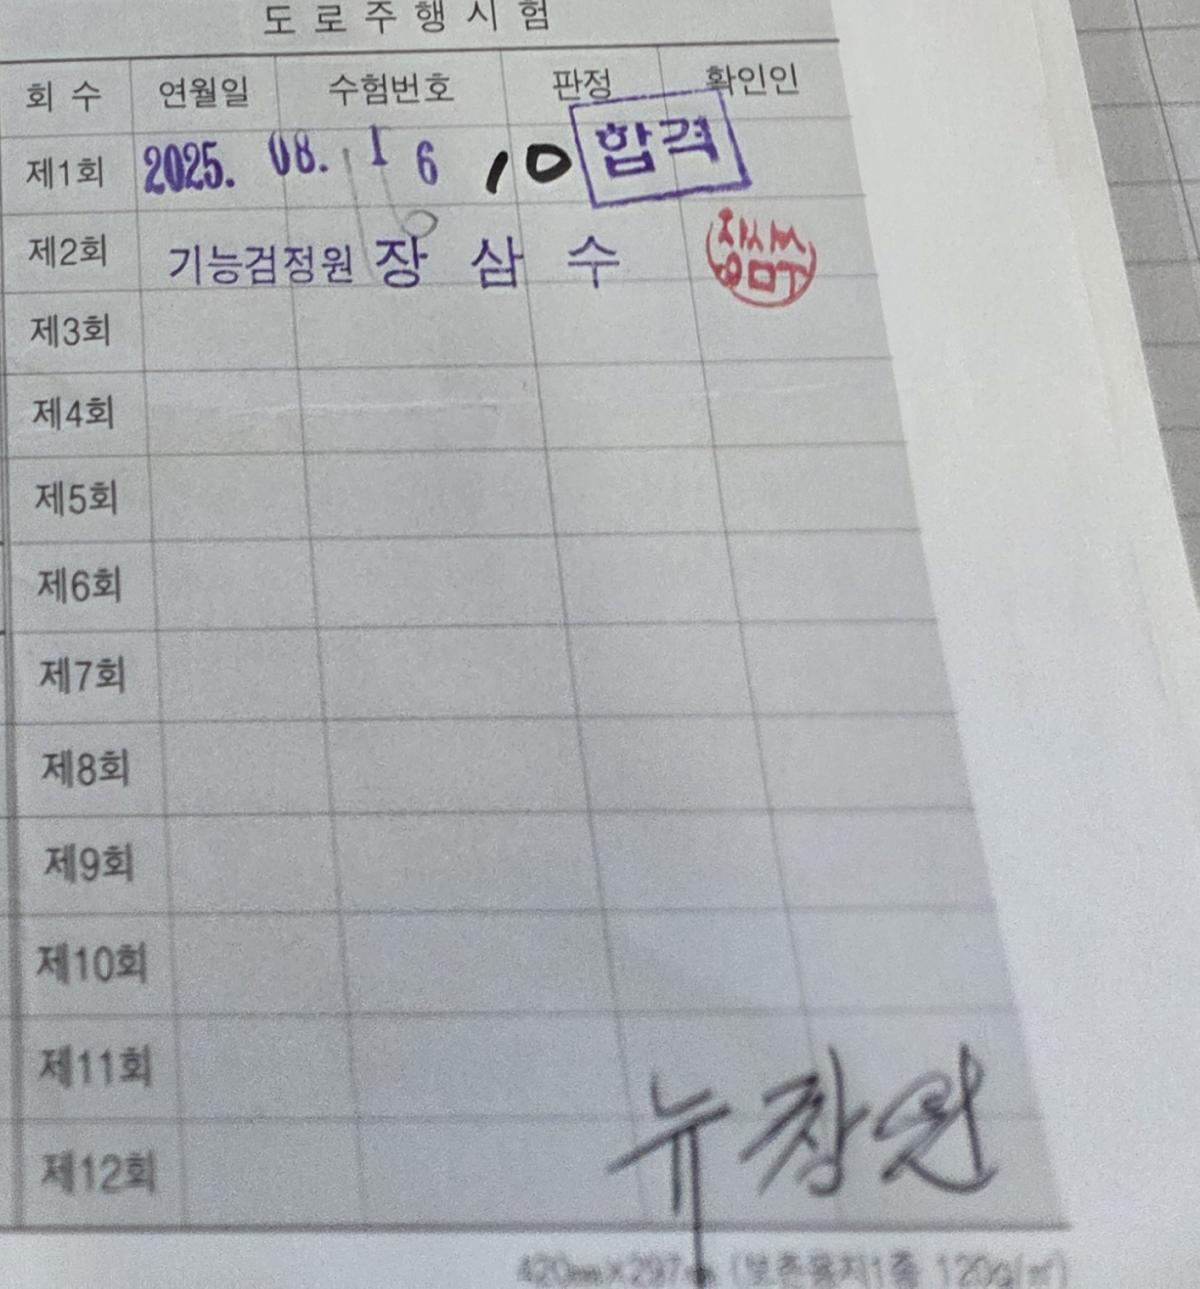 도 로 주 행 시 험
회 수 연월일 수험번호 판정 확인인
제1회 2025. 08. 16 10 합격
제2회 기능검정원 장 삼 수 장삼수
제3회
제4회
제5회
제6회
제7회
제8회
제9회
제10회
제11회
제12회
뉴창원
420㎜×297㎜ (보존용지1종 120g/㎡)